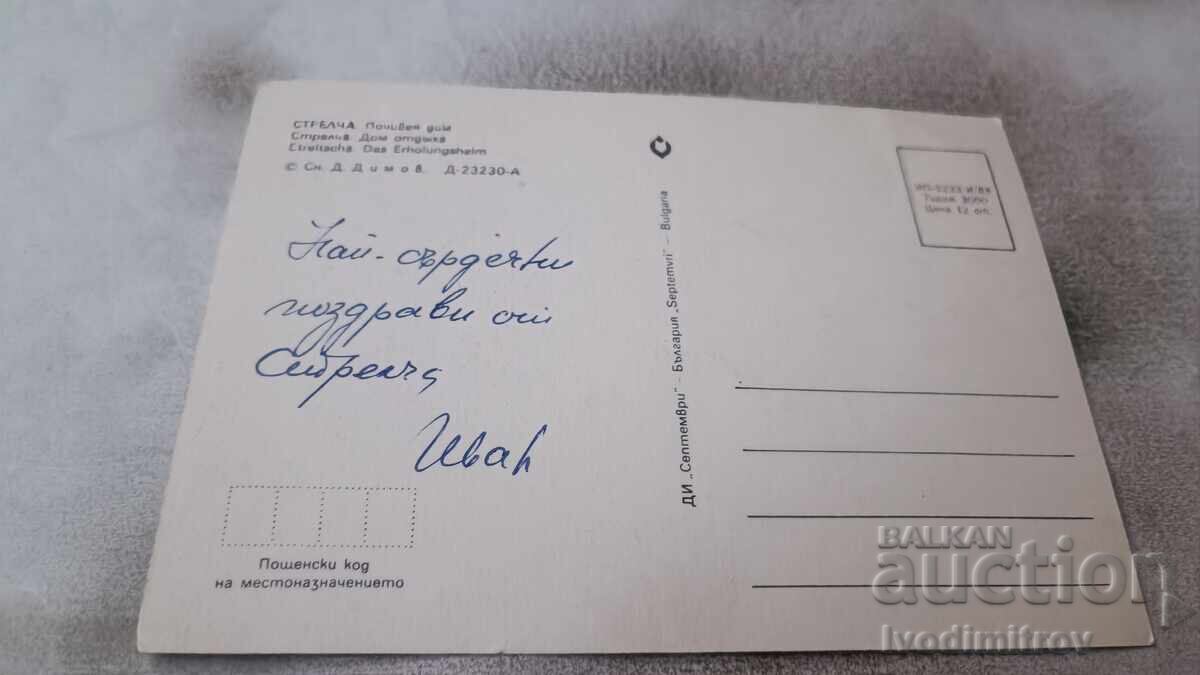 СТРЕЛЧА. Почивен дом
Стрелча. Дом отдыха
Streltscha. Das Erholungsheim
© Сн. Д. Димов. Д-23230-А
Най-сърдечни
поздрави от
Стрелча
Иван
Пощенски код
на местоназначението
ДИ „Септември" – България „Septemvri" – Bulgaria
Тираж 3000
Цена 12 ст.
BALKAN
auction
Ivodimitrov